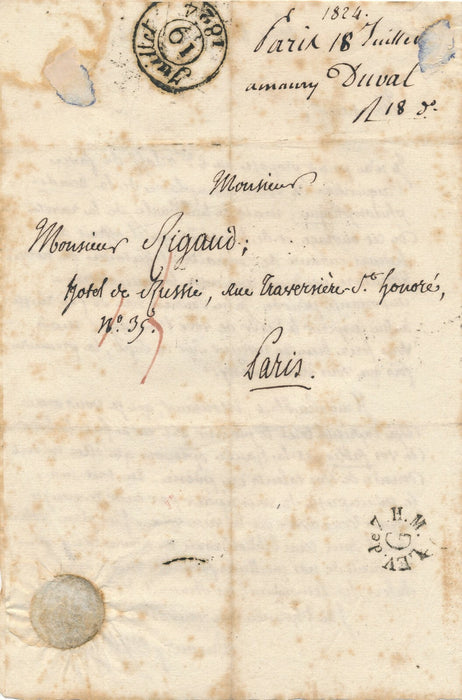 1824.
Paris 18 Juillet
amaury Duval
R 18 do
Juillet 19 1824
Monsieur
Monsieur Rigaud;
hotel de Russie, rue Traversière-St. honoré,
No. 35.
Paris.
7 H. M. LEV. de
G